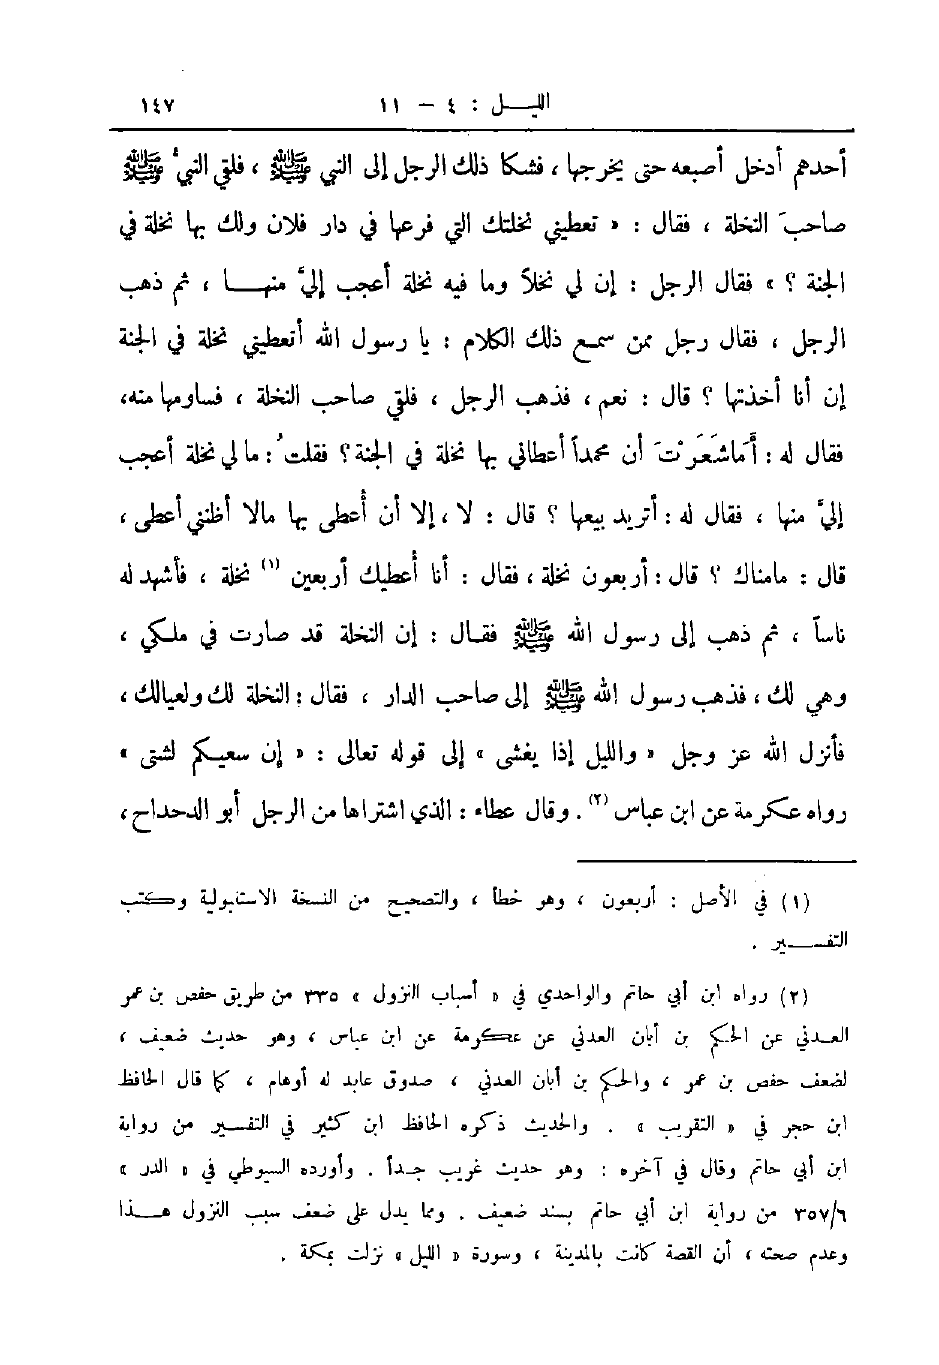 الليـــل : ٤ – ١١ ١٤٧
أحدهم أدخل أصبعه حتى يخرجها ، فشكا ذلك الرجل إلى النبي ﷺ ، فلقي النبيُّ ﷺ
صاحبَ النخلة ، فقال : « تعطيني نخلتك التي فرعها في دار فلان ولك بها نخلة في
الجنة ؟ » فقال الرجل : إن لي نخلاً وما فيه نخلة أعجب إليَّ منهـــا ، ثم ذهب
الرجل ، فقال رجل ممن سمـع ذلك الكلام : يا رسول الله أتعطيني نخلة في الجنة
إن أنا أخذتها ؟ قال : نعم ، فذهب الرجل ، فلقي صاحب النخلة ، فساومها منه،
فقال له : أَمَا شَعَرْتَ أن محمداً أعطاني بها نخلة في الجنة؟ فقلتُ : ما لي نخلة أعجب
إليَّ منها ، فقال له : أتريد بيعها ؟ قال : لا ، إلا أن أُعطى بها مالا أظنني أعطى ،
قال : مامناك ؟ قال : أربعون نخلة ، فقال : أنا أُعطيك أربعين (١) نخلة ، فأشهد له
ناساً ، ثم ذهب إلى رسول الله ﷺ فقـال : إن النخلة قد صارت في ملكي ،
وهي لك ، فذهب رسول الله ﷺ إلى صاحب الدار ، فقال : النخلة لك ولعيالك ،
فأنزل الله عز وجل « والليل إذا يغشى » إلى قوله تعالى : « إن سعيكم لشتى »
رواه عكرمة عن ابن عباس (٢) . وقال عطاء : الذي اشتراها من الرجل أبو الدحداح ،
(١) في الأصل : أربعون ، وهو خطأ ، والتصحيح من النسخة الاستنبولية وكتب
التفـــسير .
(٢) رواه ابن أبي حاتم والواحدي في « أسباب النزول » ٣٣٥ من طريق حفص بن عمر
العـدني عن الحكم بن أبان العدني عن عكرمة عن ابن عباس ، وهو حديث ضعيف ،
لضعف حفص بن عمر ، والحكم بن أبان العدني ، صدوق عابد له أوهام ، كما قال الحافظ
ابن حجر في « التقريب » . والحديث ذكره الحافظ ابن كثير في التفسير من رواية
ابن أبي حاتم وقال في آخره : وهو حديث غريب جـداً . وأورده السيوطي في « الدر »
٣٥٧/٦ من رواية ابن أبي حاتم بسند ضعيف . ومما يدل على ضعف سبب النزول هـــذا
وعدم صحته ، أن القصة كانت بالمدينة ، وسورة « الليل » نزلت بمكة .